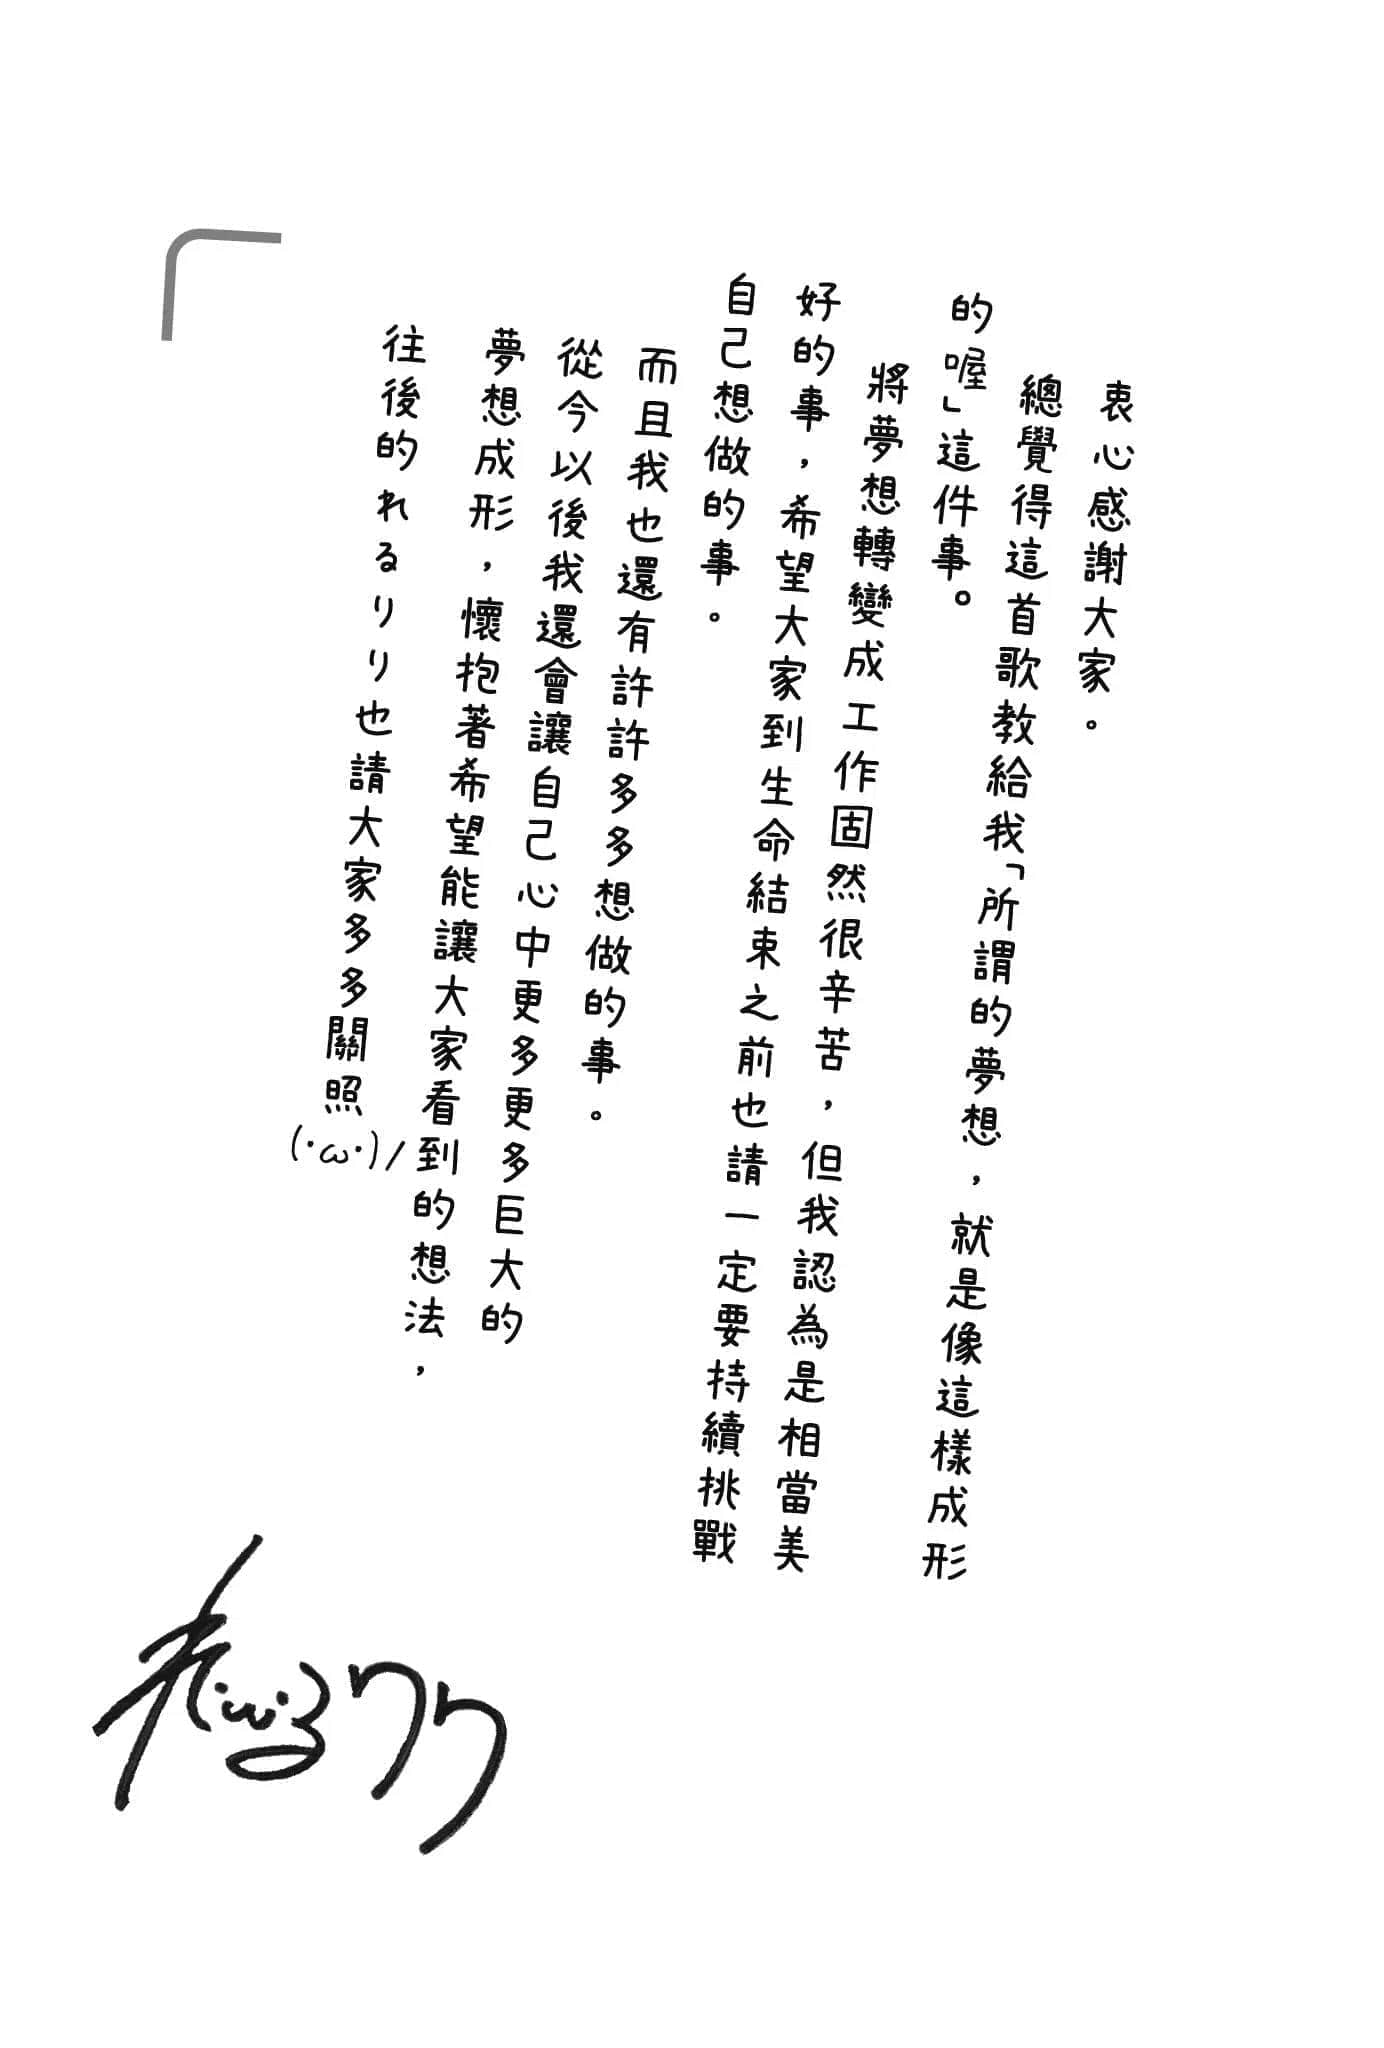 衷心感謝大家。
總覺得這首歌教給我「所謂的夢想，就是像這樣成形
的喔」這件事。
將夢想轉變成工作固然很辛苦，但我認為是相當美
好的事，希望大家到生命結束之前也請一定要持續挑戰
自己想做的事。
而且我也還有許許多多想做的事。
從今以後我還會讓自己心中更多更多巨大的
夢想成形，懷抱著希望能讓大家看到的想法，
往後的れるりり也請大家多多關照(・ω・)/
れるりり